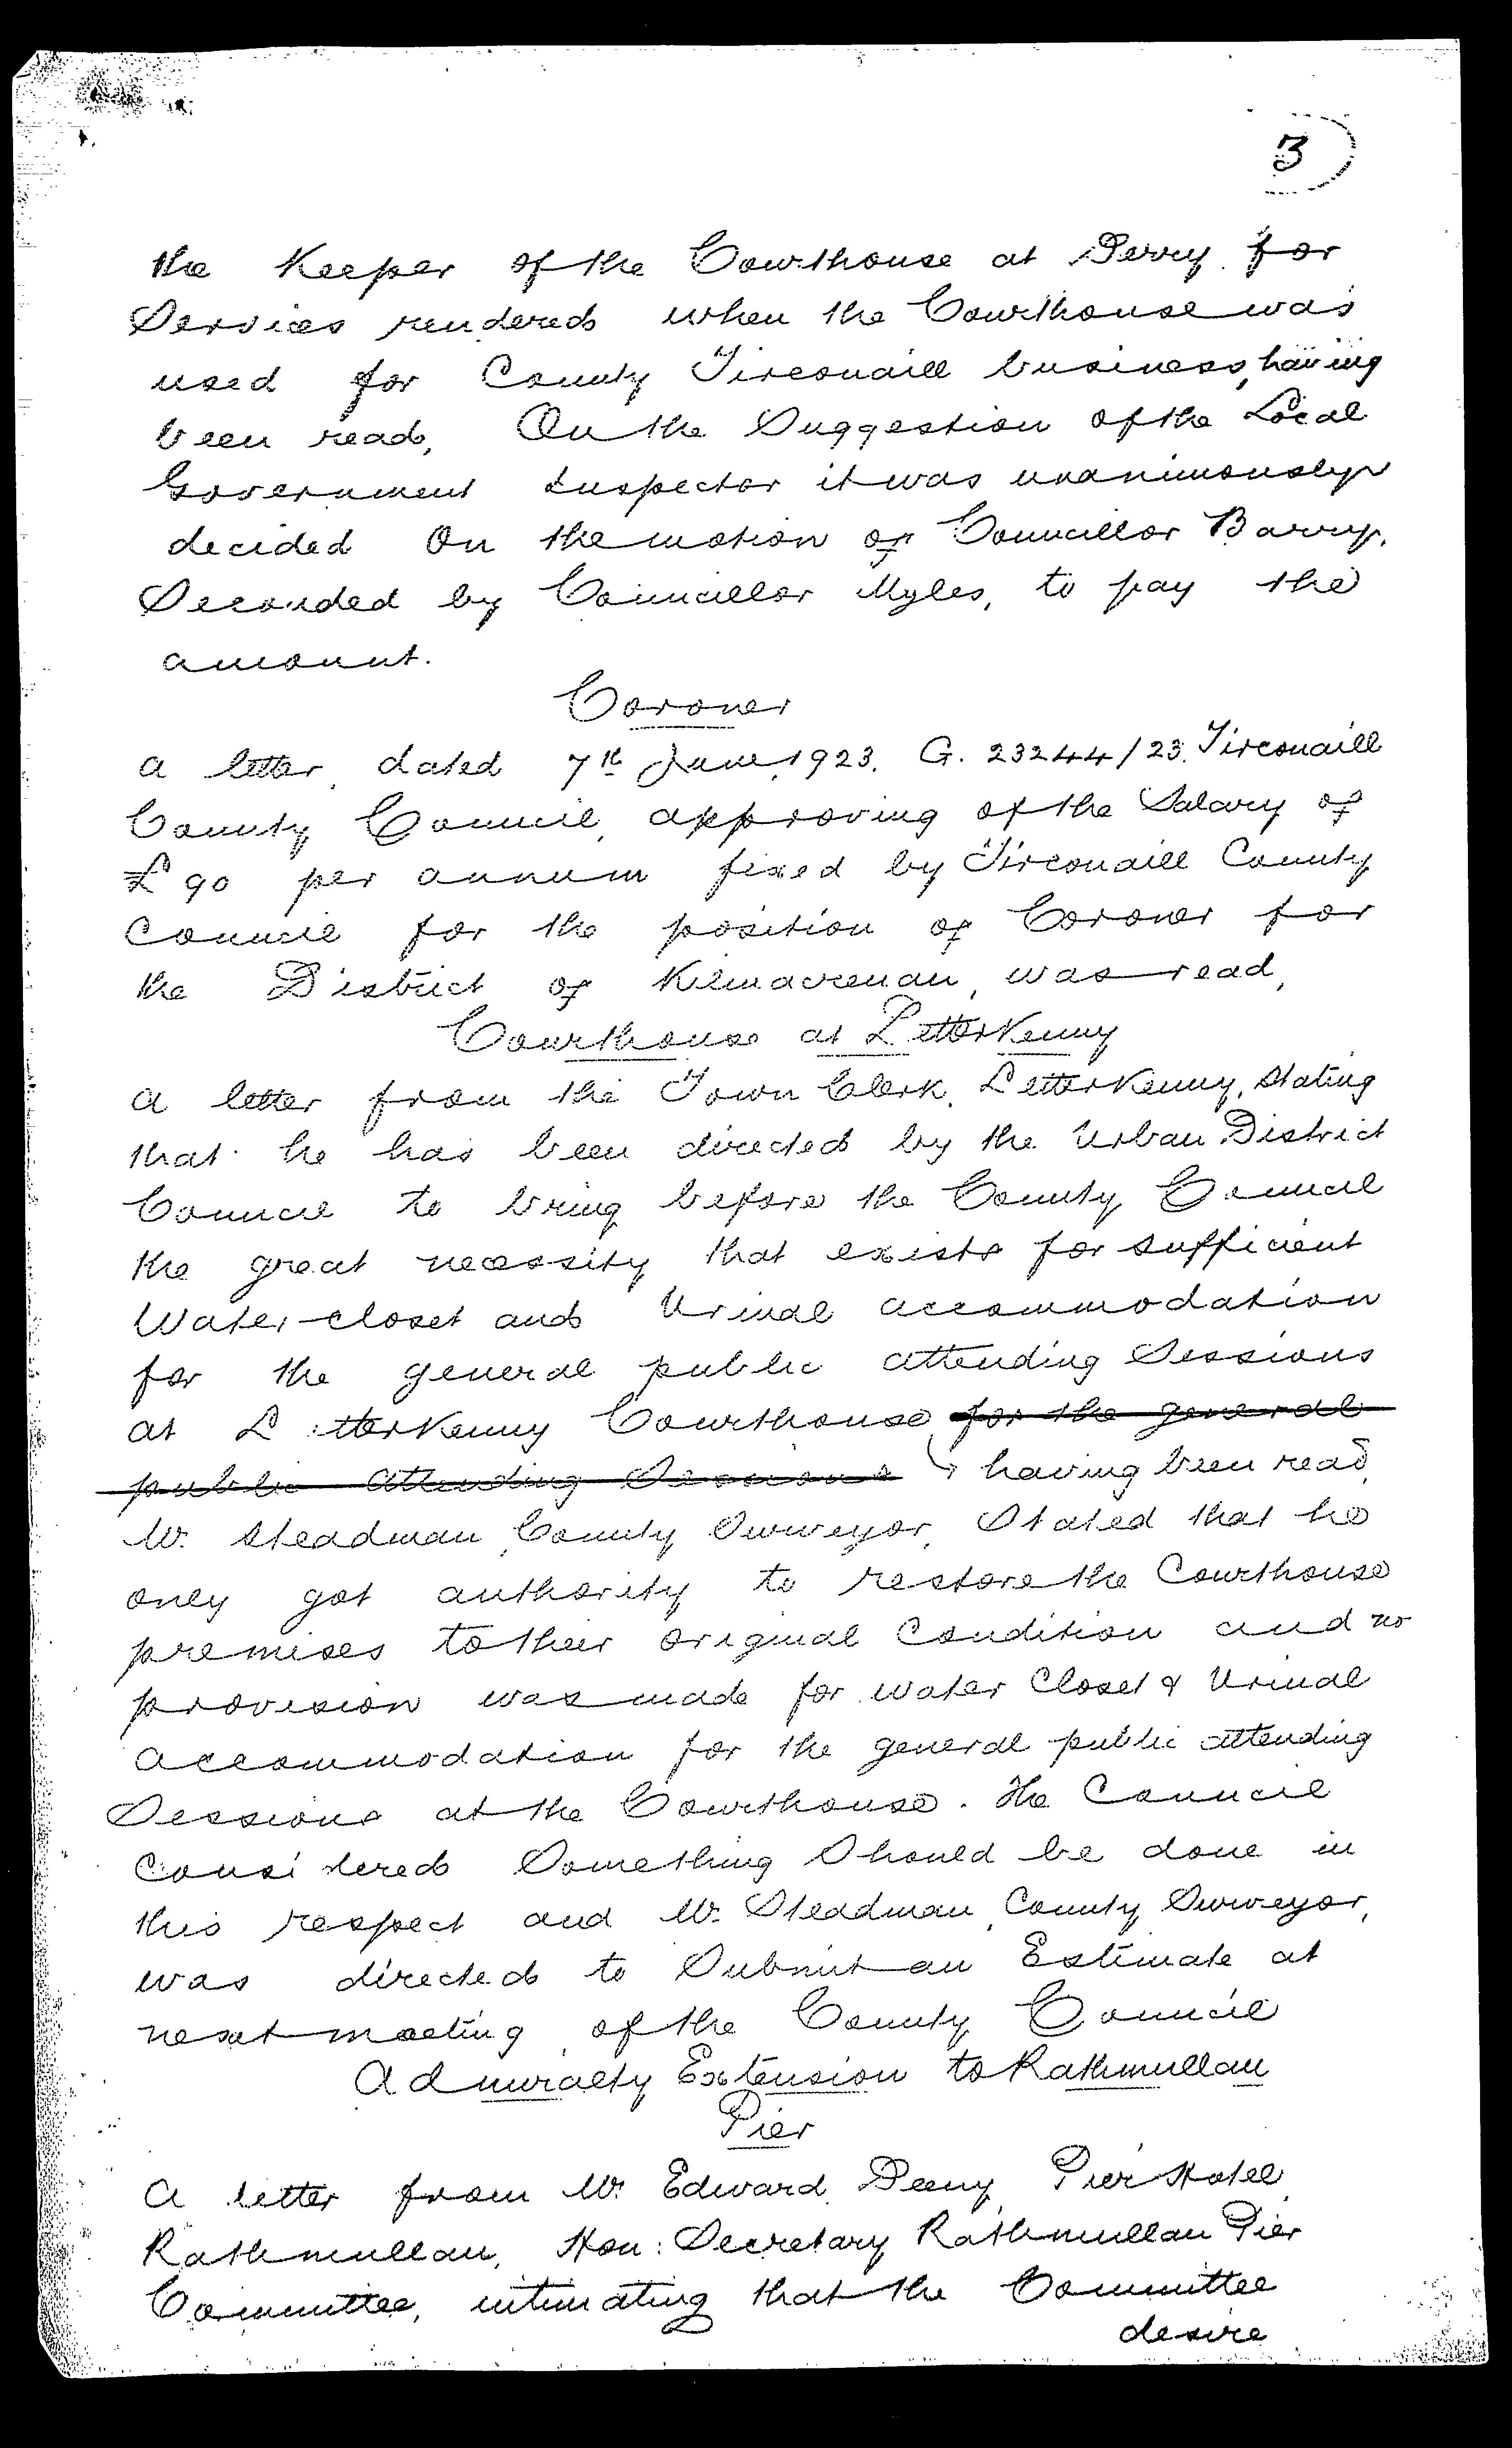 3
the Keeper of the Courthouse at Derry for
Services rendered when the Courthouse was
used for County Tirconaill business, having
been read, On the Suggestion of the Local
Government Inspector it was unanimously
decided On the motion of Councillor Barry,
Seconded by Councillor Myles, to pay the
amount.
Coroner
a letter, dated 7th June, 1923, G. 23244/23. Tirconaill
County Council, approving of the Salary of
£90 per annum fixed by Tirconaill County
Council for the position of Coroner for
the District of Kilmacrenan, was read,
Courthouse at Letterkenny
a letter from the Town Clerk, Letterkenny, stating
that he has been directed by the Urban District
Council to bring before the County Council
the great necessity that exists for sufficient
Water-closet and Urinal accommodation
for the general public attending Sessions
at Letterkenny Courthouse for the general
public attending Sessions having been read,
Mr. Steadman, County Surveyor, Stated that he
only got authority to restore the Courthouse
premises to their original Condition and no
provision was made for water Closet & Urinal
accommodation for the general public attending
Sessions at the Courthouse. The Council
Considered Something Should be done in
this respect and Mr. Steadman, County Surveyor,
was directed to Submit an Estimate at
next meeting of the County Council
Admiralty Extension to Rathmullan
Pier
a letter from Mr. Edward Deeny, Pier Hotel,
Rathmullan, Hon: Secretary Rathmullan Pier
Committee, intimating that the Committee
desire